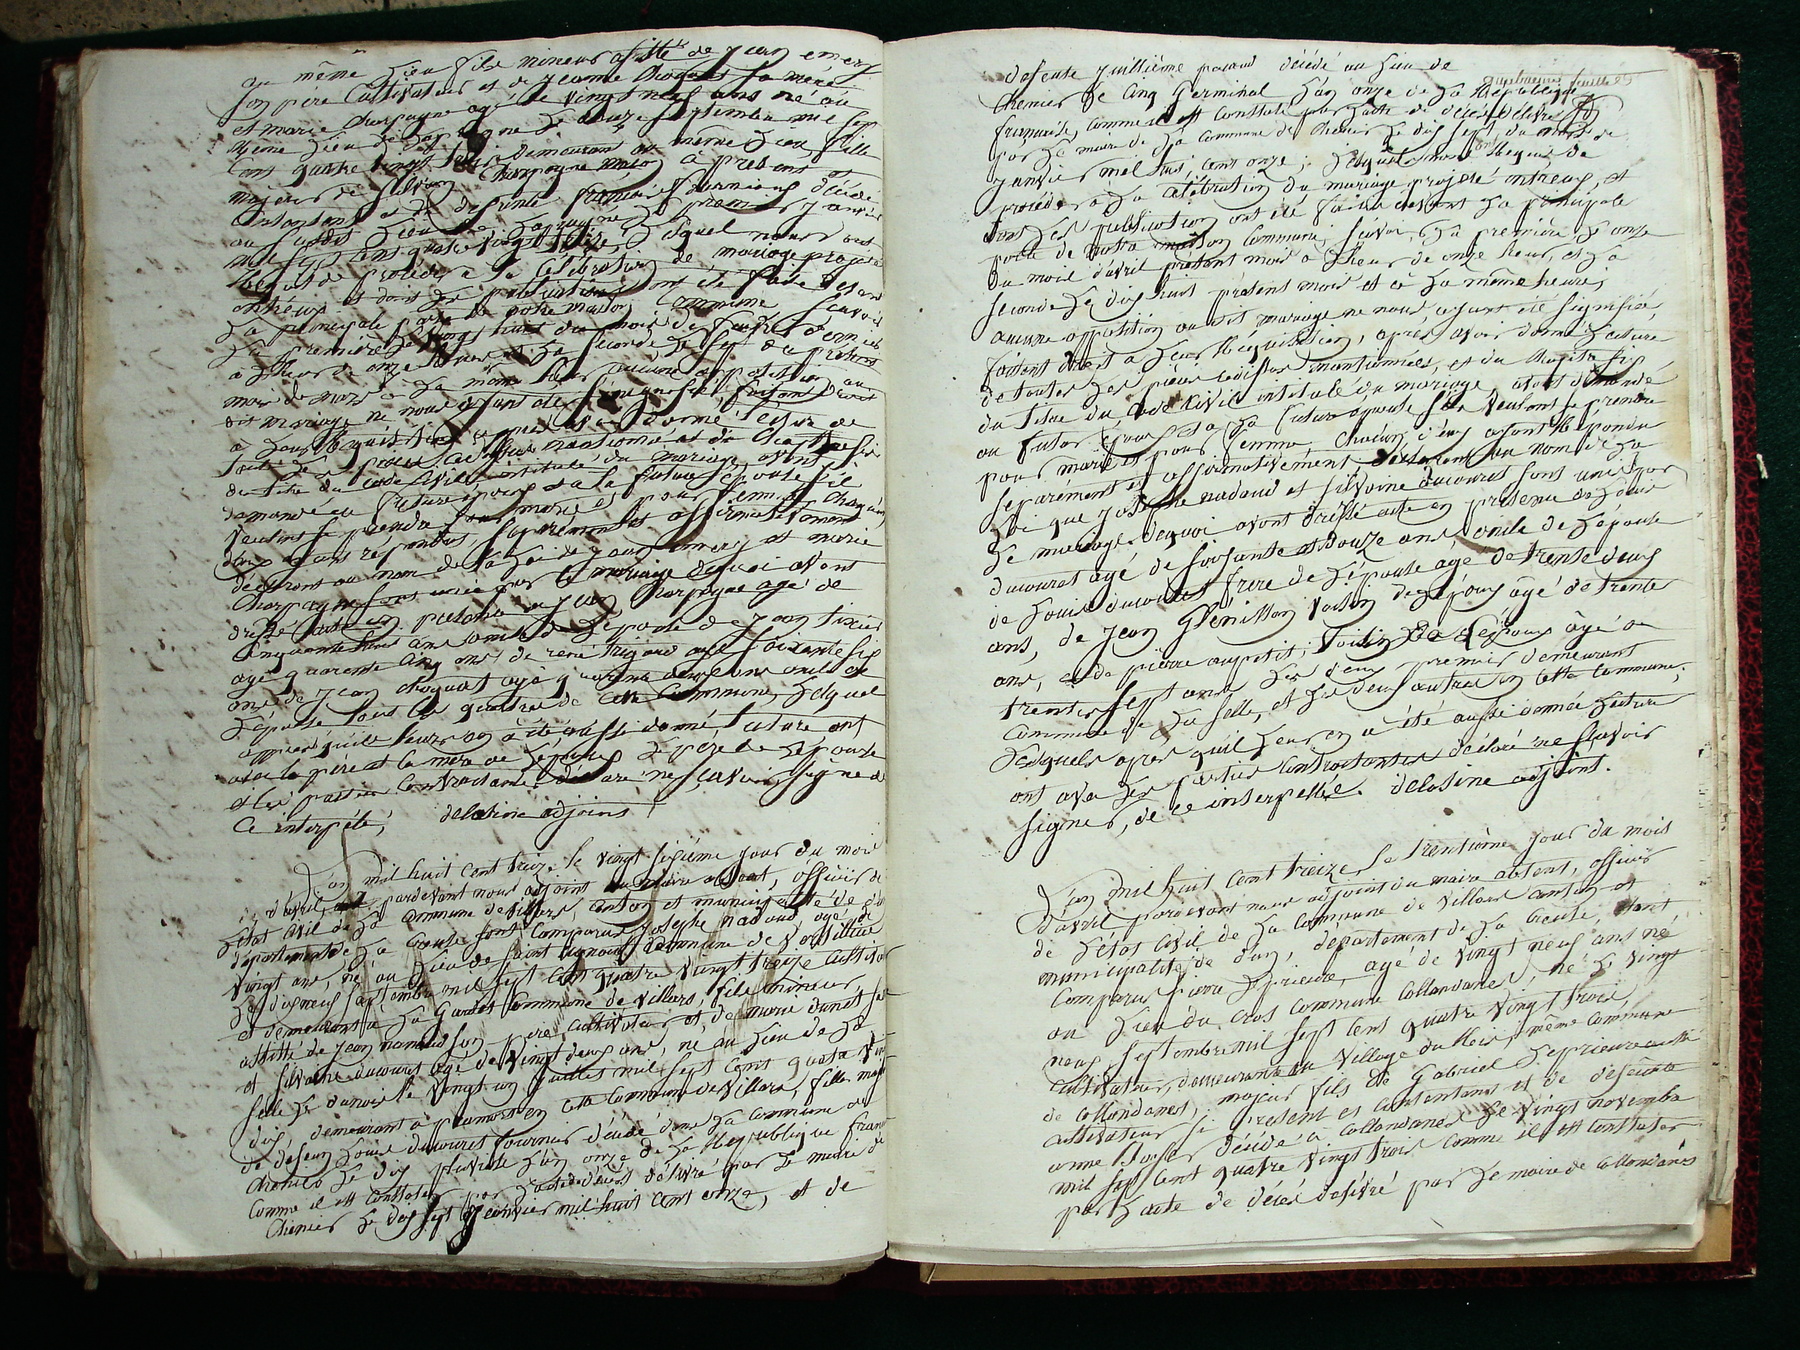 du même lieu fils mineur assisté de Jean emery
son père Cultivateur et de Jeanne Choquat sa mère
et marie Charpagne agé de vingt neuf ans né au
même lieu de le douze septembre mil sept
cent quatre vingt demeurant au même lieu, fille
majeur de Silvain Charpagne à présent et
Consentant et de defunte décédé
au susdit lieu de le premier Janvier
mil sept cent quatre vingt Lesquels nous ont
Requis de procéder a la Celebration de mariage projeté
entreux et dont les publications ont été faites devant
La principale porte de notre maison Commune, Scavoir
La première le vingt huit du mois de
a L'heur de onze heures et la seconde le sept du présent
mois de mars a la même heur aucune opposition au
dit mariage ne nous ayant été signifié, faisant droit
à leur Requisition, après avoir donné lecture de
toutes les pièces cidessus mentionné et du Chapitre six
du titre du Code Civil intitulé du mariage avons
demandé au futur époux et a la future épouse s'il
veulent se prendre pour mari et pour femme, chaqu'un
deux ayant répondus séparément et affirmativement
déclarons au nom de la Loi que Jean emery et marie
Charpagne sont unie par le mariage dequoi avons
dressé acte en présence de Jean Charpagne agé de
Cinquante huit ans de L'épouse de Jean tixier
agé quarente cinq ans, de rené trigaud agé soixante six
ans de Jean choquat agé quarente deux ans oncle de
L'épouse tous les quatre de cette Commune, Lesquel
apprès qu'il leurs en a été aussi donné, lecture ont
avec le père et la mère de L'époux le père de L'épouse
et les parties Contractante déclaré ne scavoir signé de
Ce interpélé, delasine adjoint
L'an mil huit cent treize le vingt sixième Jour du mois
d'avril pardevant nous adjoint du maire absent, officier de
L'état civil de la Commune de Villars, Canton et municipalité de dun
département de la Creuse sont Comparus Josephe nadaud, agé de
vingt ans, né au lieu de saint Commune de
Le dix neuf septembre mil sept cent quatre vingt treize cultivateur
et demeurant à la Commune de Villars, fils mineur,
assisté de Jean nadaud son père cultivateur et de marie
et Silvaine ducouret agé de vingt deux ans, né au lieu de la
Selle le dunoise le vingt un Juillet mil sept cent quatre vingt
dix, demeurant à en cette Commune de Villars, fille majeur
de defeun Louis ducouret fournier décédé dans la Commune de
Chenier le dix pluviose L'an onze de la République français
Comme il est Constaté par L'acte de décès délivré par le maire de
Chenier le dix sept Janvier mil huit cent onze, et de
defunte Juillième décédé au lieu de
Chenier le cinq Germinal L'an onze de la République
française, comme il est constaté par L'acte de décès délivré
par le maire de la Commune de Chenier le dix sept du mois de
Janvier mil huit cent onze; Lesquels nous ont Requis de
procéder à la Célébration du mariage projeté entreux, et
dont les publication ont été faites devant la principale
porte de notre maison Commune, scavoir, La première, le onze
du mois d'avril présent mois a L'heur de onze heur, et la
seconde le dix huit présent mois et a La même heure,
aucune opposition audit mariage ne nous ayant été signifié,
faisant droit à leur Requisition, après avoir donné lecture
de toutes les pièces cidessus mentionnées, et du Chapitre six
du Titre du Code Civil intitulé du mariage, avons demandé
au futur époux et a La future épouse s'ils veulent se prendre
pour mari et pour femme, chacun d'eux ayant répondu
séparément et affirmativement déclarons au nom de la
Loi que Josephe nadaud et silvaine ducouret sont unie par
le mariage dequoi avons dréssé acte en présence de Louis
ducouret agé de soixante et douze ans, oncle de L'épouse
de Louis ducouret frère de L'épouse agé de trente deux
ans, de Jean Glénisson voisin de L'époux agé de trente
ans, et de pierre aupetit, Voisin de L'époux âgé de
trente sept ans, les deux premiers demeurant
Commune de la Selle, et les deux autres en cette Commune;
Lesquels apres qu'il leur en a été aussi donnée lecture
ont avec Les parties Contractantes déclaré ne scavoir
signer, de ce interpellée. delasine adjoint.
L'an mil huit cent treize le trentième jour du mois
d'avril pardevant nous adjoint du maire absent, officier
de L'état Civil de la Commune de Villars canton et
municipalité de dun, département de la Creuse, sont
Comparus pierre Leprieure, agé de vingt neuf ans né
au Lieu du Cros Commune Collondanes, né le vingt
neuf septembre mil sept cent quatre vingt trois,
cultivateur, demeurant au village du même Commune
de Collondanes, majeur fils de Gabriel Leprieure aussi
cultivateur si présent et consentant et de defeunte
anne décédé a Collondanes le vingt novembre
mil sept cent quatre vingt trois comme il est constaté
par L'acte de décès délivré par le maire de Collondanes